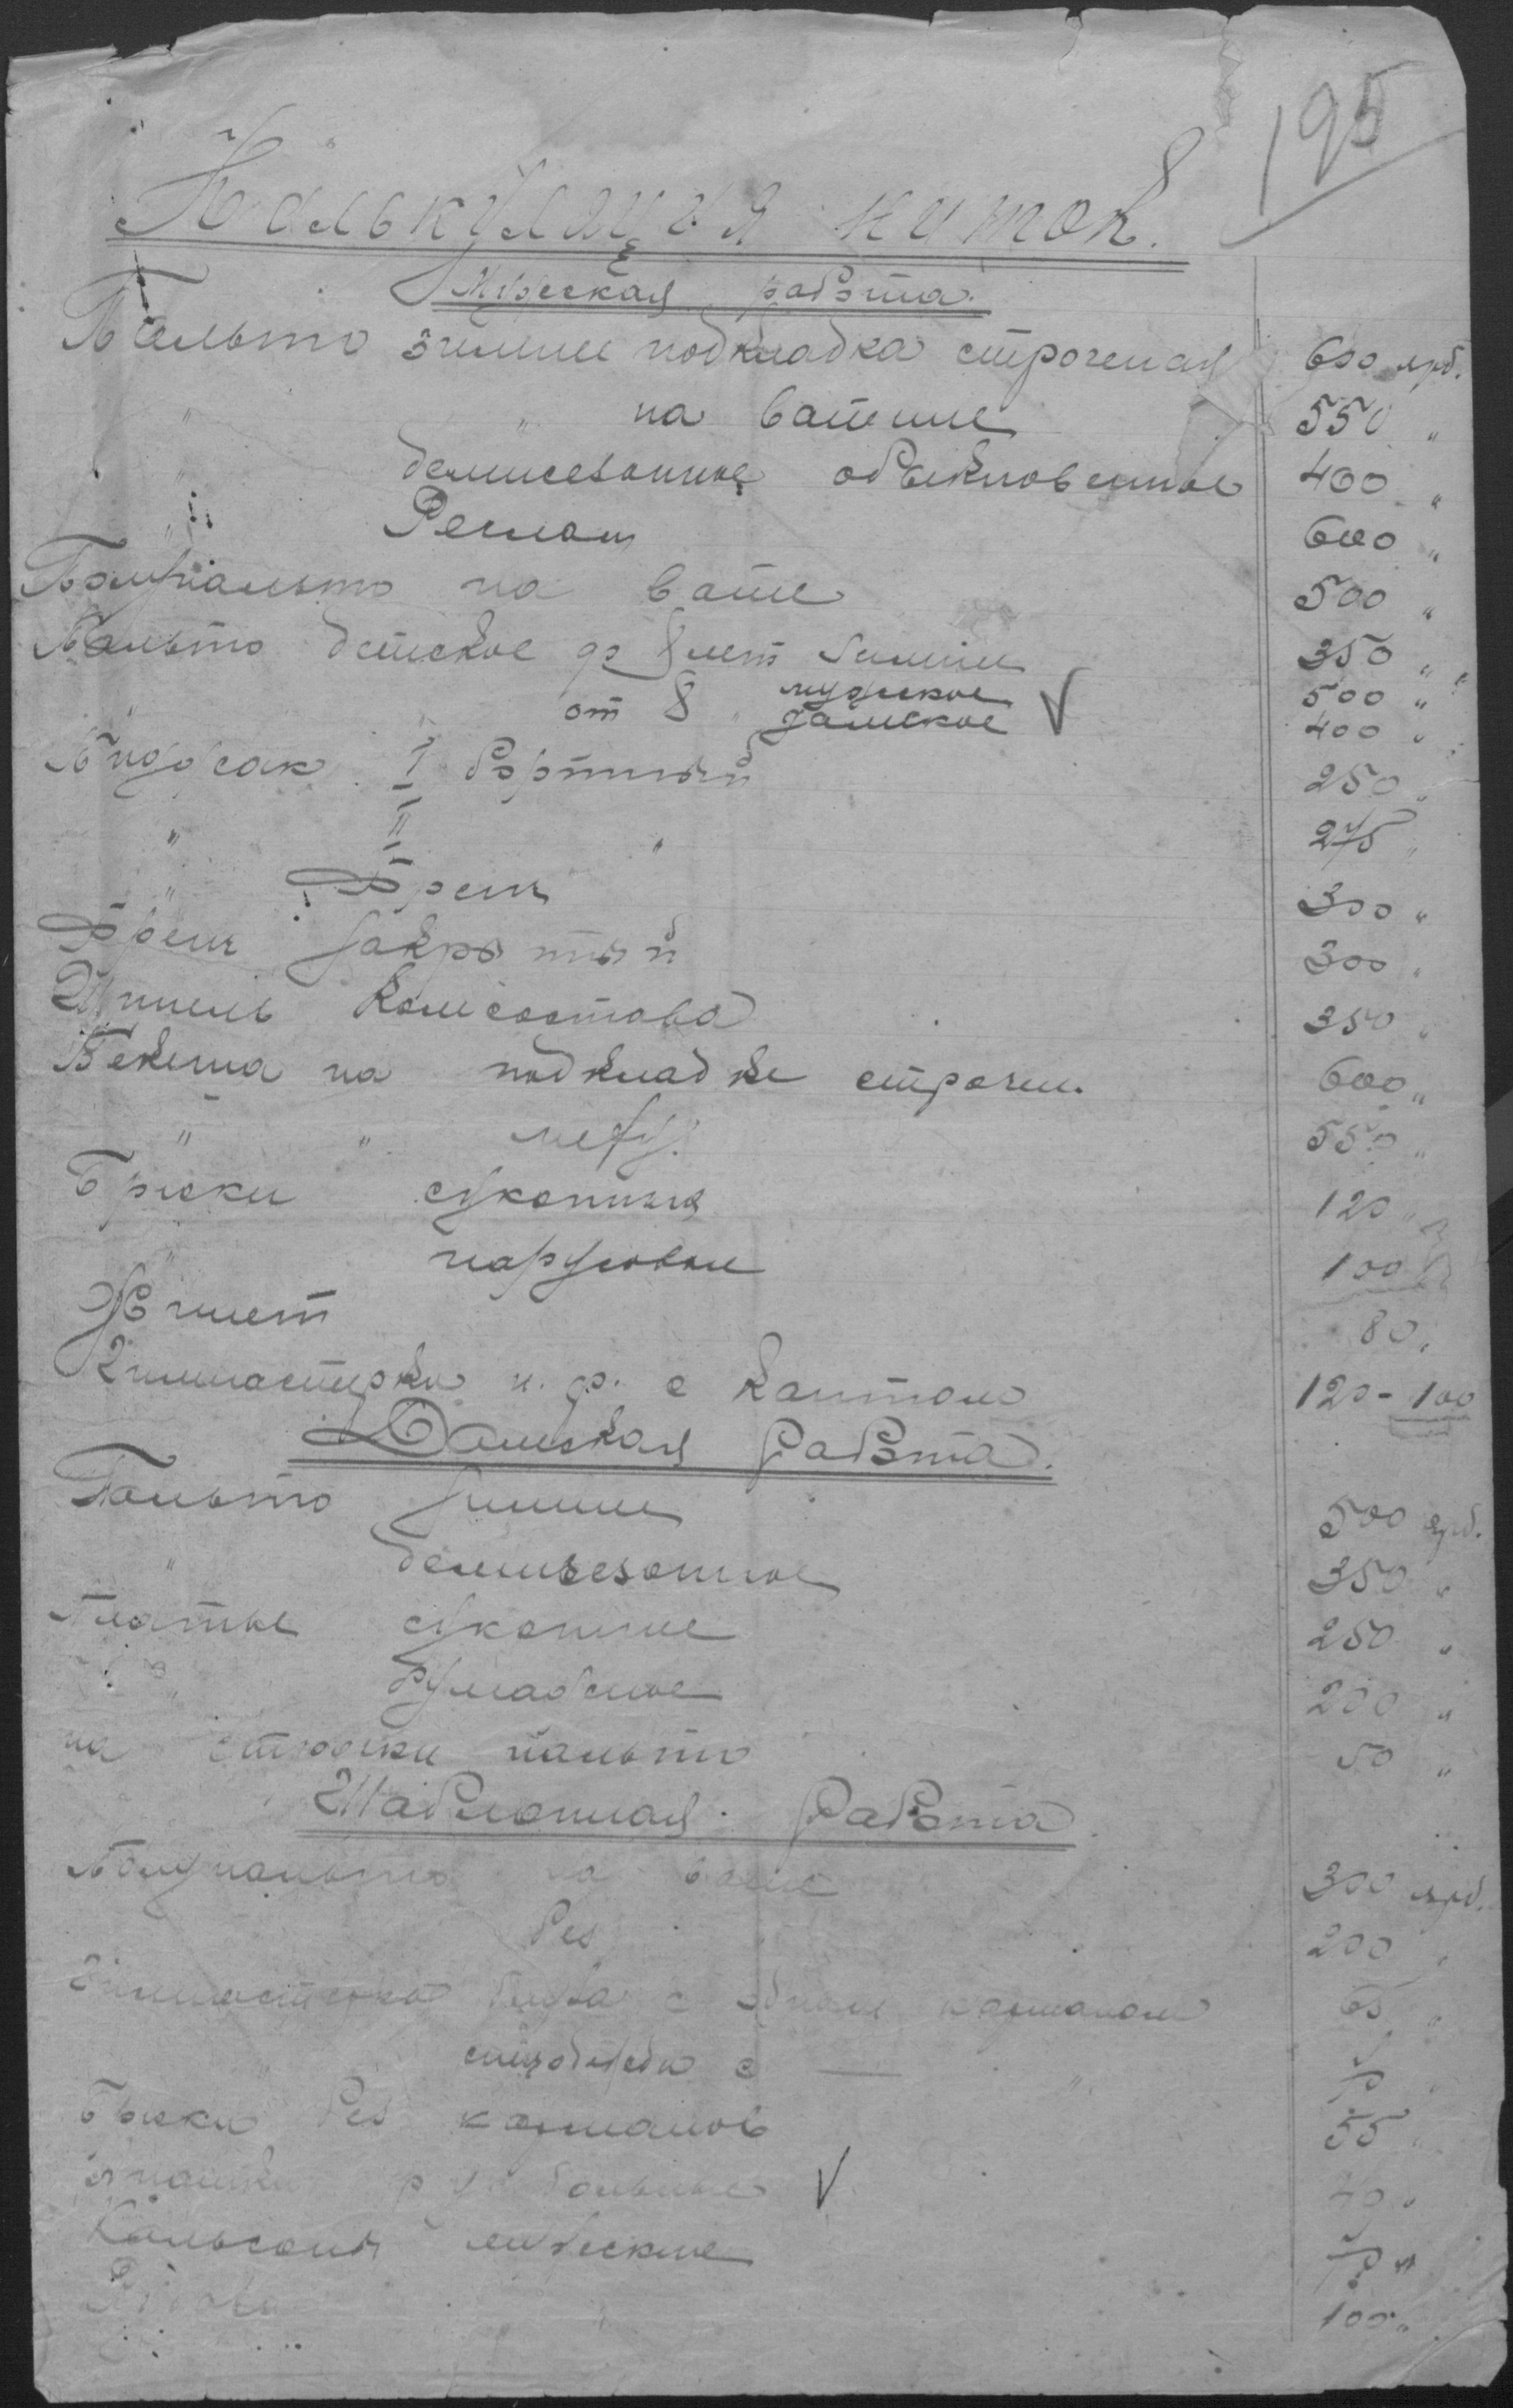 195
Калькуляция ниток.
Мужская работа.
Пальто зимнее подкладка строченая 600 ярд.
" " на ватине 550 "
" демисезонное обыкновенное 400 "
" Реглан 600 "
Полупальто на вате 500 "
Пальто детское до 8 лет зимнее 350 "
" от 8 " мужское 500 "
дамское 400 "
Пиджак I бортный 250 "
" II " 275 "
" Френч 300 "
Френч закрытый 300 "
Шинель Комсостава 350 "
Бекеша на подкладке строчен. 600 "
" " меху 550 "
Брюки суконные 120 "
" парусовые 100 "
Жилет 80 "
Гимнастерка и. ф. с кантом 120 - 100
Дамская Работа.
Пальто зимнее 500 ярд.
" демисезонное 350 "
Платье суконное 250 "
" бумажное 200 "
на стежки пальто 50 "
Шаблонная Работа
Полупальто на вате 300 ярд.
без 200 "
Гимнастерка с одним карманом 65 "
с — "
Брюки без карманов 55 "
большие 40 "
Кальсоны мужские "
100 "